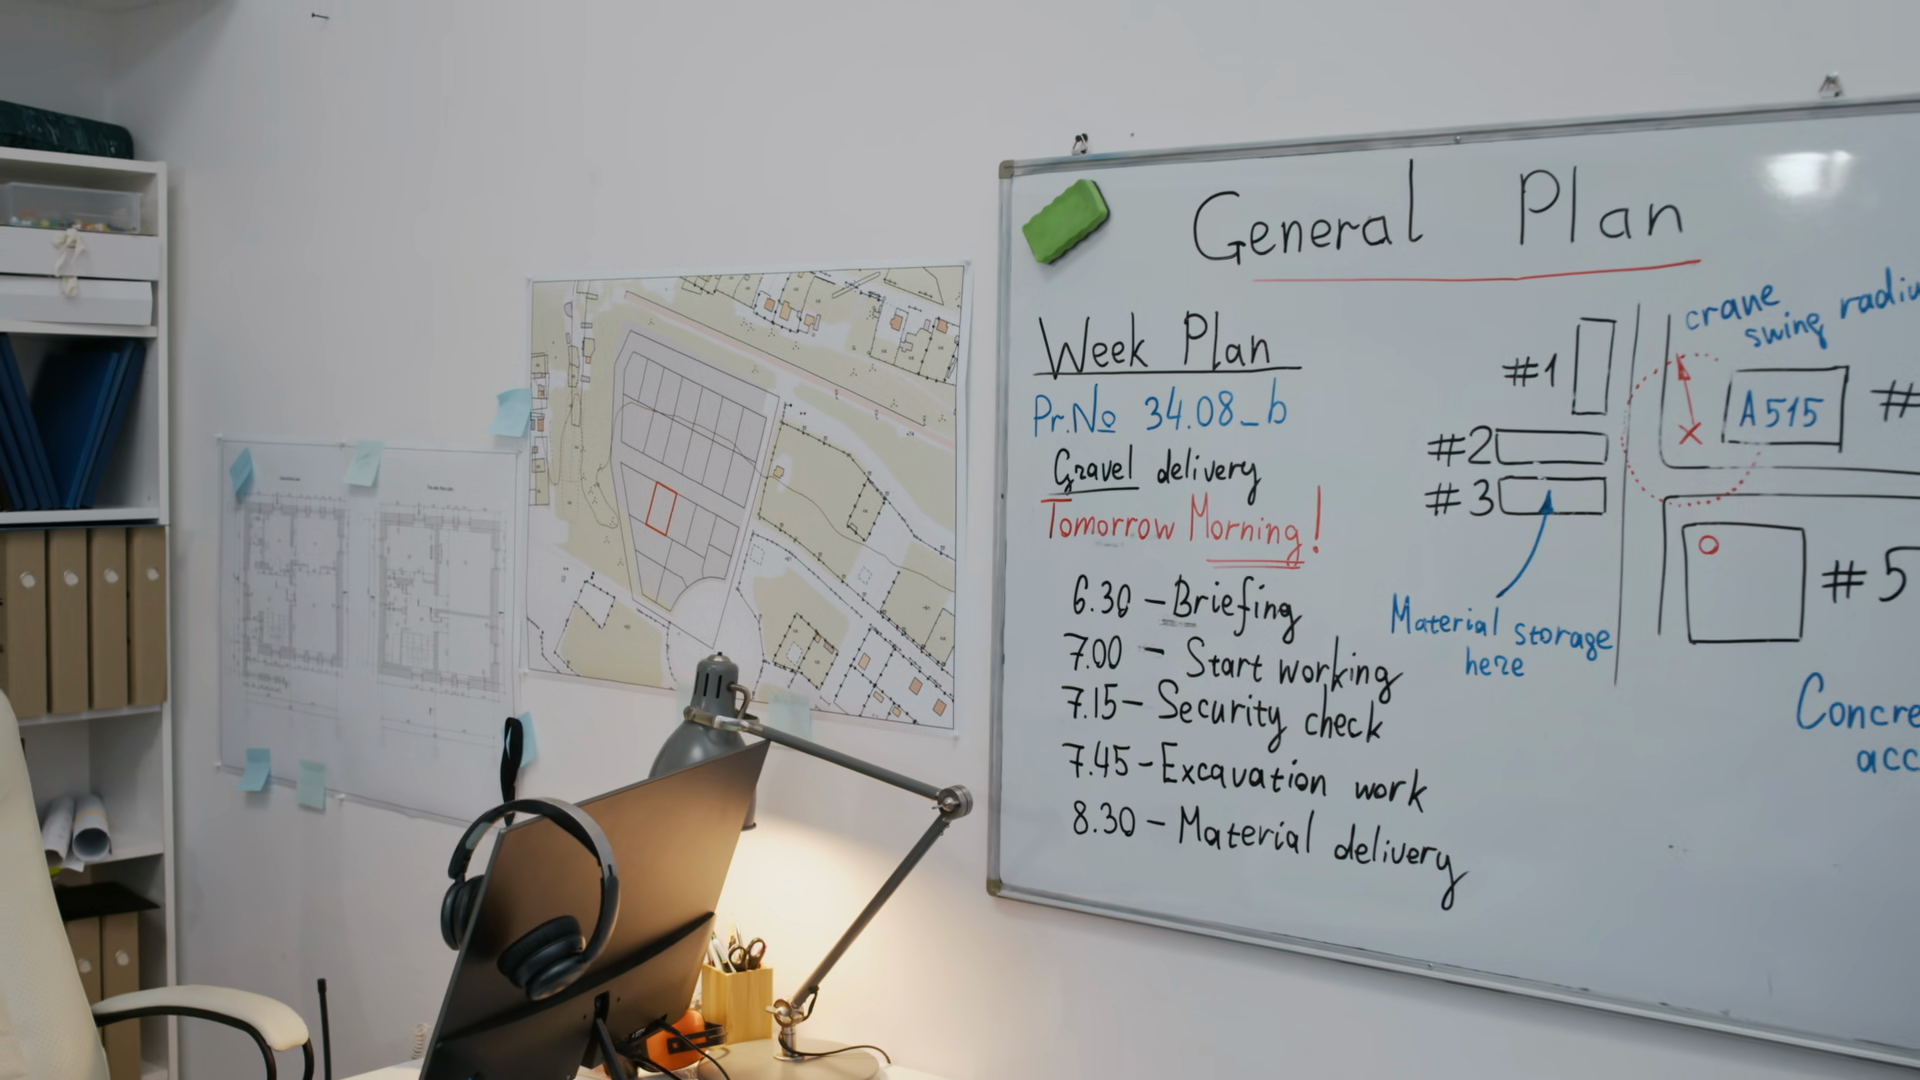 General Plan
Week Plan
Pr.№ 34.08_b
Gravel delivery
Tomorrow Morning!
6.30 – Briefing
7.00 – Start working
7.15 – Security check
7.45 – Excavation work
8.30 – Material delivery
#1
#2
#3
Material storage
here
crane
swing
A515
#
#5